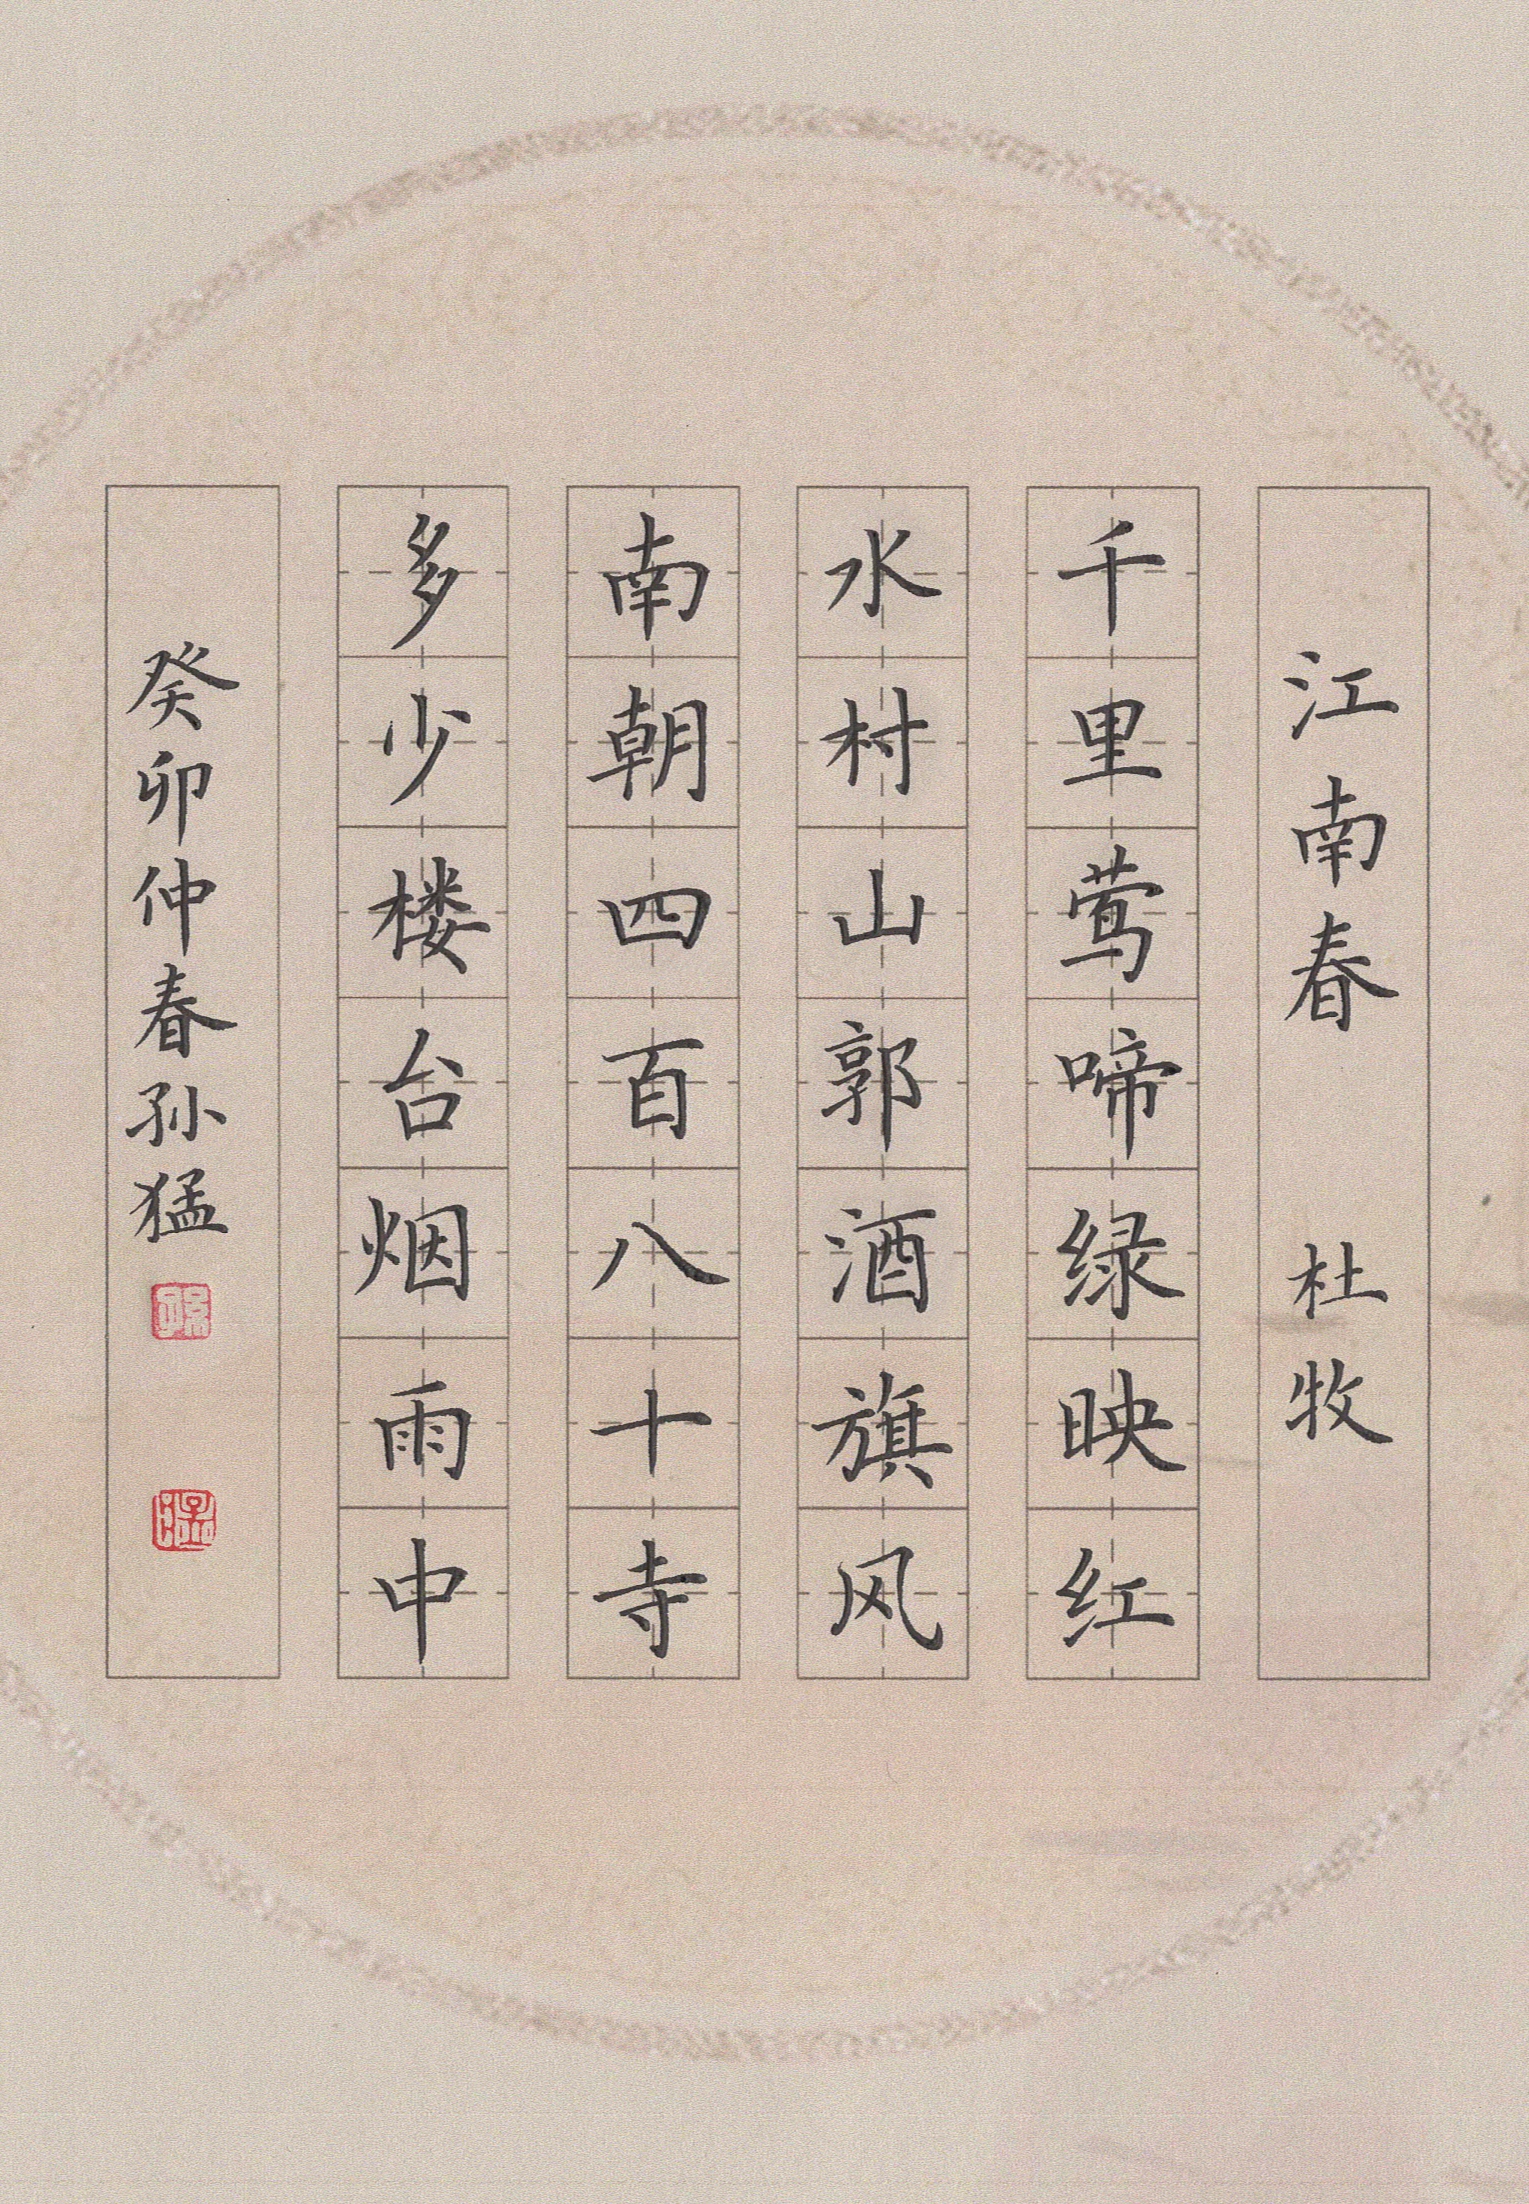 江南春 杜牧
千里莺啼绿映红
水村山郭酒旗风
南朝四百八十寺
多少楼台烟雨中
癸卯仲春孙猛